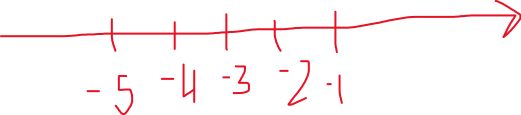 -5 -4 -3 -2 -1